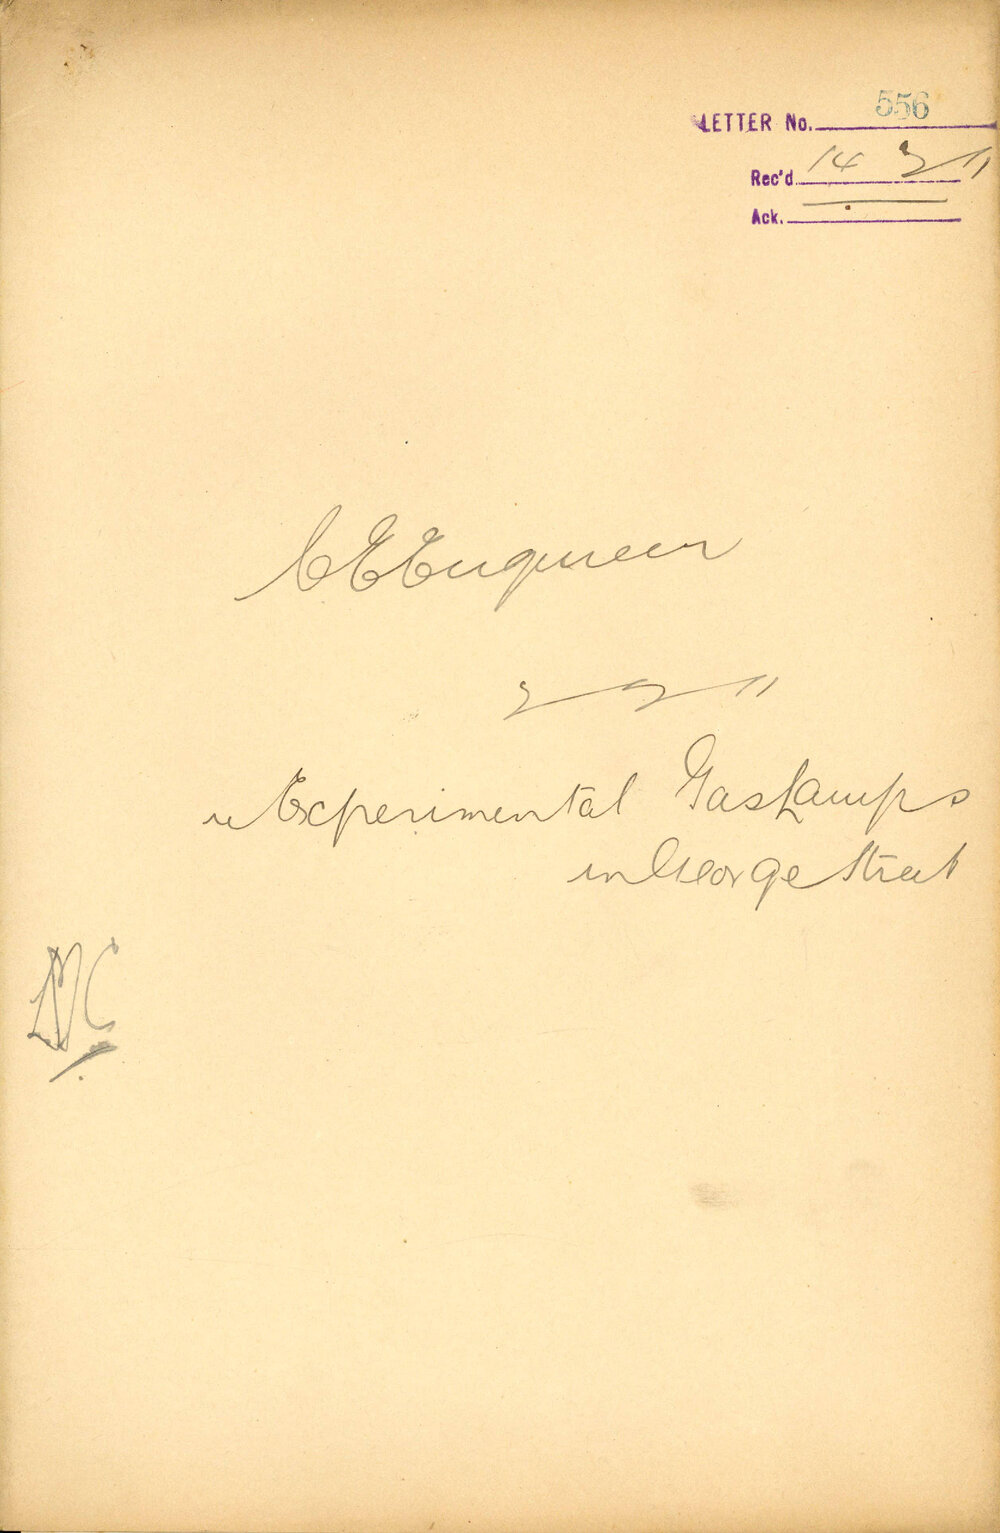 LETTER No. 556
Rec'd. 14 2 11
Ack.
C E Engineer
2 2 11
re Experimental Gas Lamps
in George Street